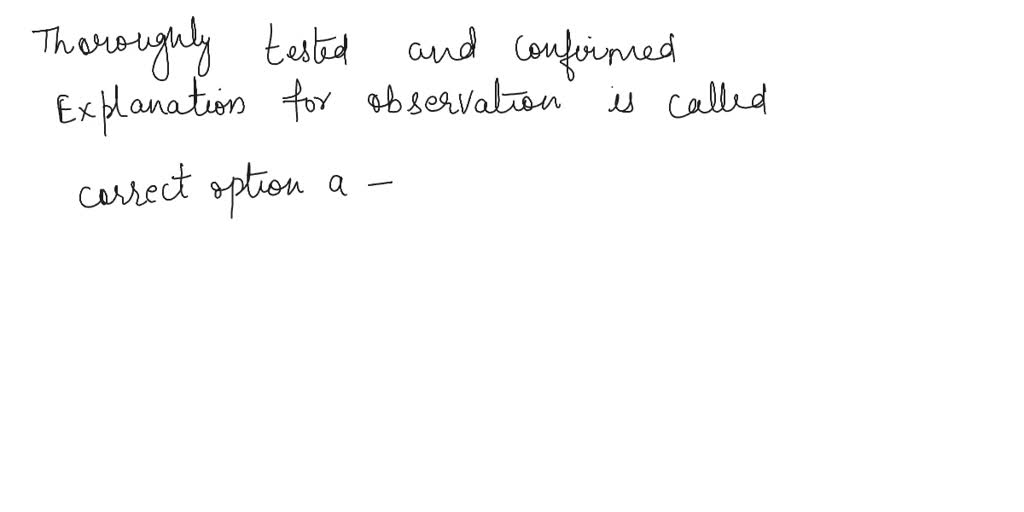 Thoroughly tested and confirmed
Explanation for observation is called
correct option a –